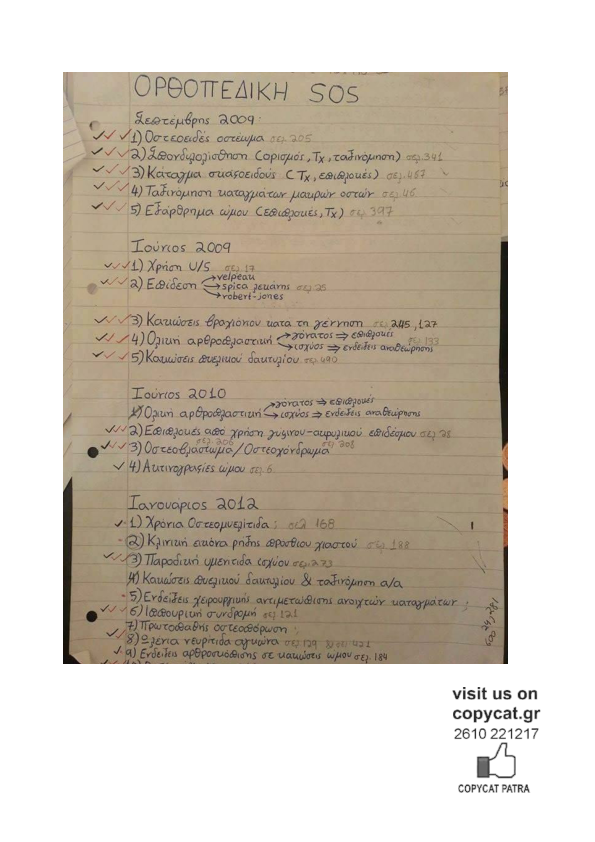 ΟΡΘΟΠΕΔΙΚΗ SOS
Σεπτέμβρης 2009:
1) Οστεοειδές οστέωμα σελ 205
2) Σπονδυλολίσθηση (ορισμός, Tx, ταξινόμηση) σελ. 341
3) Κάταγμα σκαφοειδούς (Tx, επιπλοκές) σελ. 457
4) Ταξινόμηση καταγμάτων μακρών οστών σελ. 46
5) Εξάρθρημα ώμου (επιπλοκές, Tx) σελ 397
Ιούνιος 2009
1) Χρήση U/S σελ. 17
velpeau
2) Επίδεση spica λεκάνης σελ 25
robert-jones
3) Κακώσεις βραχιόνιου κατά τη γέννηση σελ. 245, 127
γόνατος ⇒ επιπλοκές
4) Ολική αρθροπλαστική σελ 133
ισχύος ⇒ ενδείξεις αναθεώρησης
5) Κακώσεις πυελικού δακτυλίου σελ. 490
Ιούνιος 2010
γόνατος ⇒ επιπλοκές
1) Ολική αρθροπλαστική ισχύος ⇒ ενδείξεις αναθεώρησης
2) Επιπλοκές από χρήση γύψινου-ακρυλικού επιδέσμου σελ. 28
σελ 206 σελ 208
3) Οστεοβλάστωμα/Οστεοχόνδρωμα
4) Ακτινογραφίες ώμου σελ. 6
Ιανουάριος 2012
1) Χρόνια Οστεομυελίτιδα: σελ 168
2) Κλινική εικόνα ρήξης πρόσθιου χιαστού σελ. 188
3) Παροδική υμενίτιδα ισχύου σελ 273
4) Κακώσεις πυελικού δακτυλίου & ταξινόμηση α/α
5) Ενδείξεις χειρουργικής αντιμετώπισης ανοιχτών καταγμάτων;
6) Ιππουρική συνδρομή σελ. 121
7) Πρωτοπαθής οστεοπόρωση:
8) Ωλένια νευρίτιδα αγκώνα σελ 129 & σελ 421
9) Ενδείξεις αρθροσκόπισης σε κακώσεις ώμου σελ. 184
visit us on
copycat.gr
2610 221217
COPYCAT PATRA